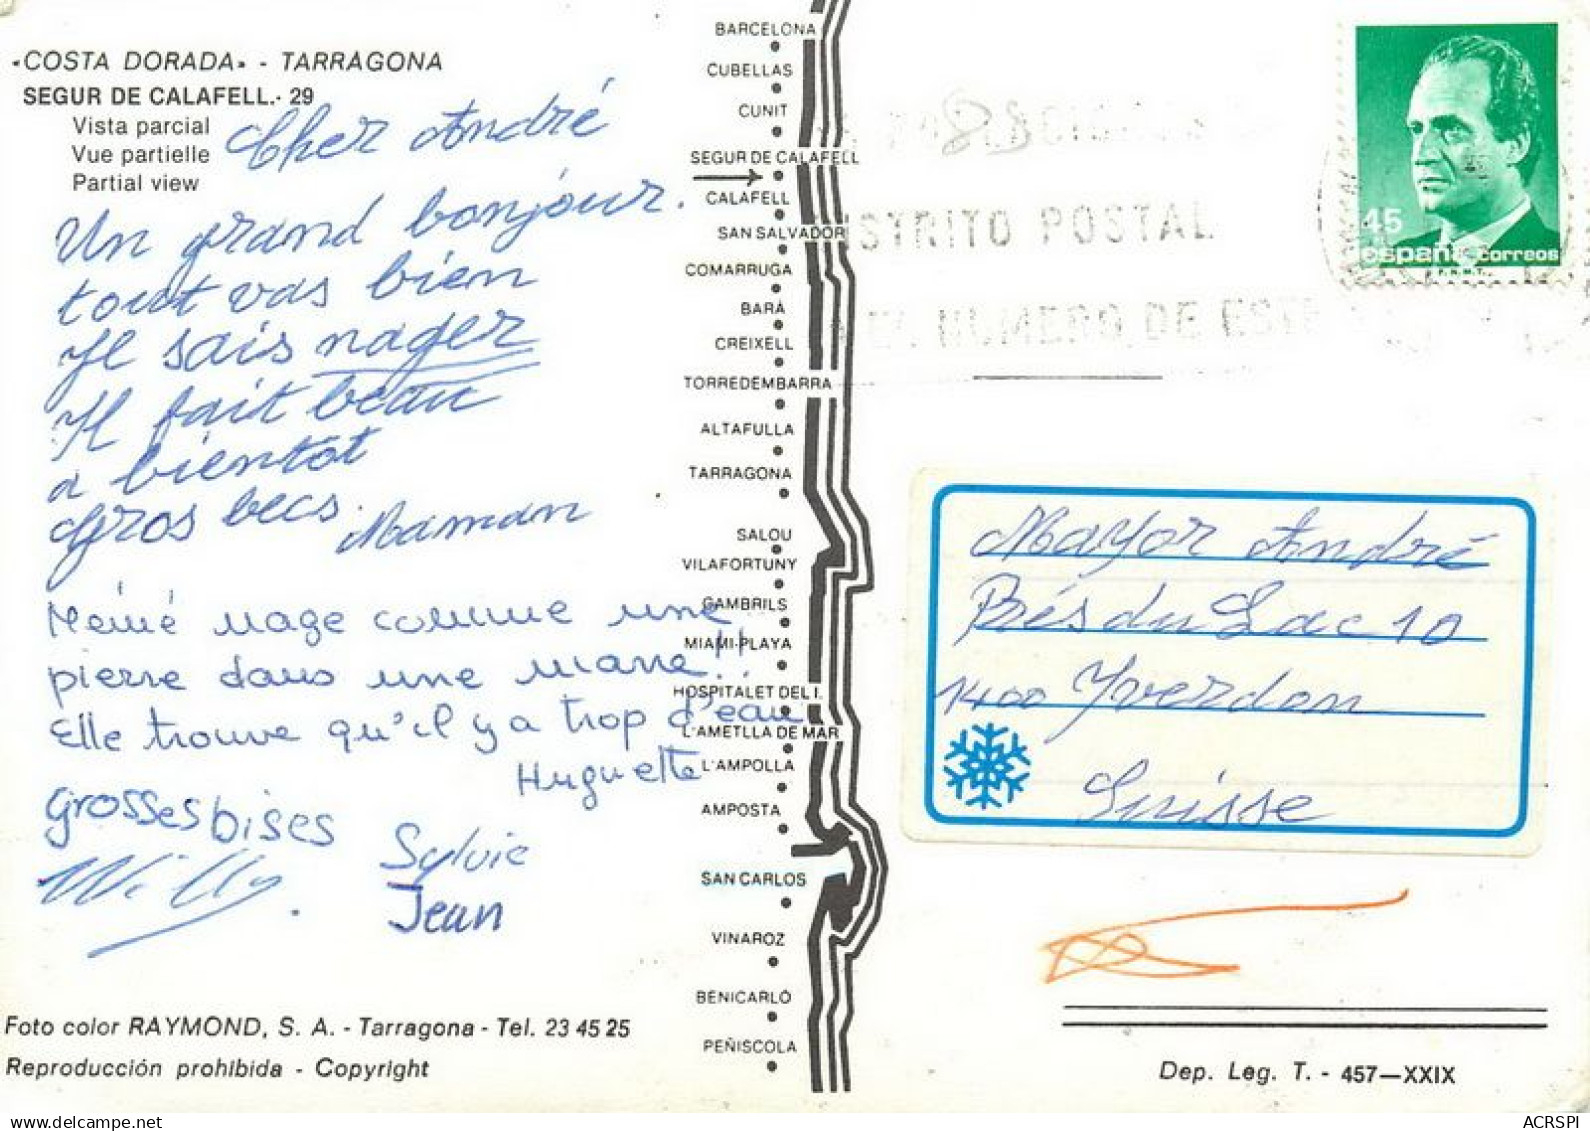 «COSTA DORADA» - TARRAGONA
SEGUR DE CALAFELL.- 29
Vista parcial
Vue partielle
Partial view
Cher André
Un grand bonjour.
tout vas bien
Je sais nager
Il fait beau
a bientot
Gros becs. Maman
Mémé nage comme une
pierre dans une mare!!
Elle trouve qu'il y a trop d'eau
Huguette
grosses bises
Sylvie
Willy.
Jean
Foto color RAYMOND, S. A. - Tarragona - Tel. 23 45 25
Reproducción prohibida - Copyright
BARCELONA
CUBELLAS
CUNIT
SEGUR DE CALAFELL
CALAFELL
SAN SALVADOR
COMARRUGA
BARÁ
CREIXELL
TORREDEMBARRA
ALTAFULLA
TARRAGONA
SALOU
VILAFORTUNY
CAMBRILS
MIAMI-PLAYA
HOSPITALET DEL I.
L'AMETLLA DE MAR
L'AMPOLLA
AMPOSTA
SAN CARLOS
VINAROZ
BENICARLÓ
PEÑISCOLA
STRITO POSTAL
NUMERO DE
45
españa correos
F.N.M.T.
Mayor André
Prés du Lac 10
1400 Yverdon
Suisse
Dep. Leg. T. - 457—XXIX
ACRSPI